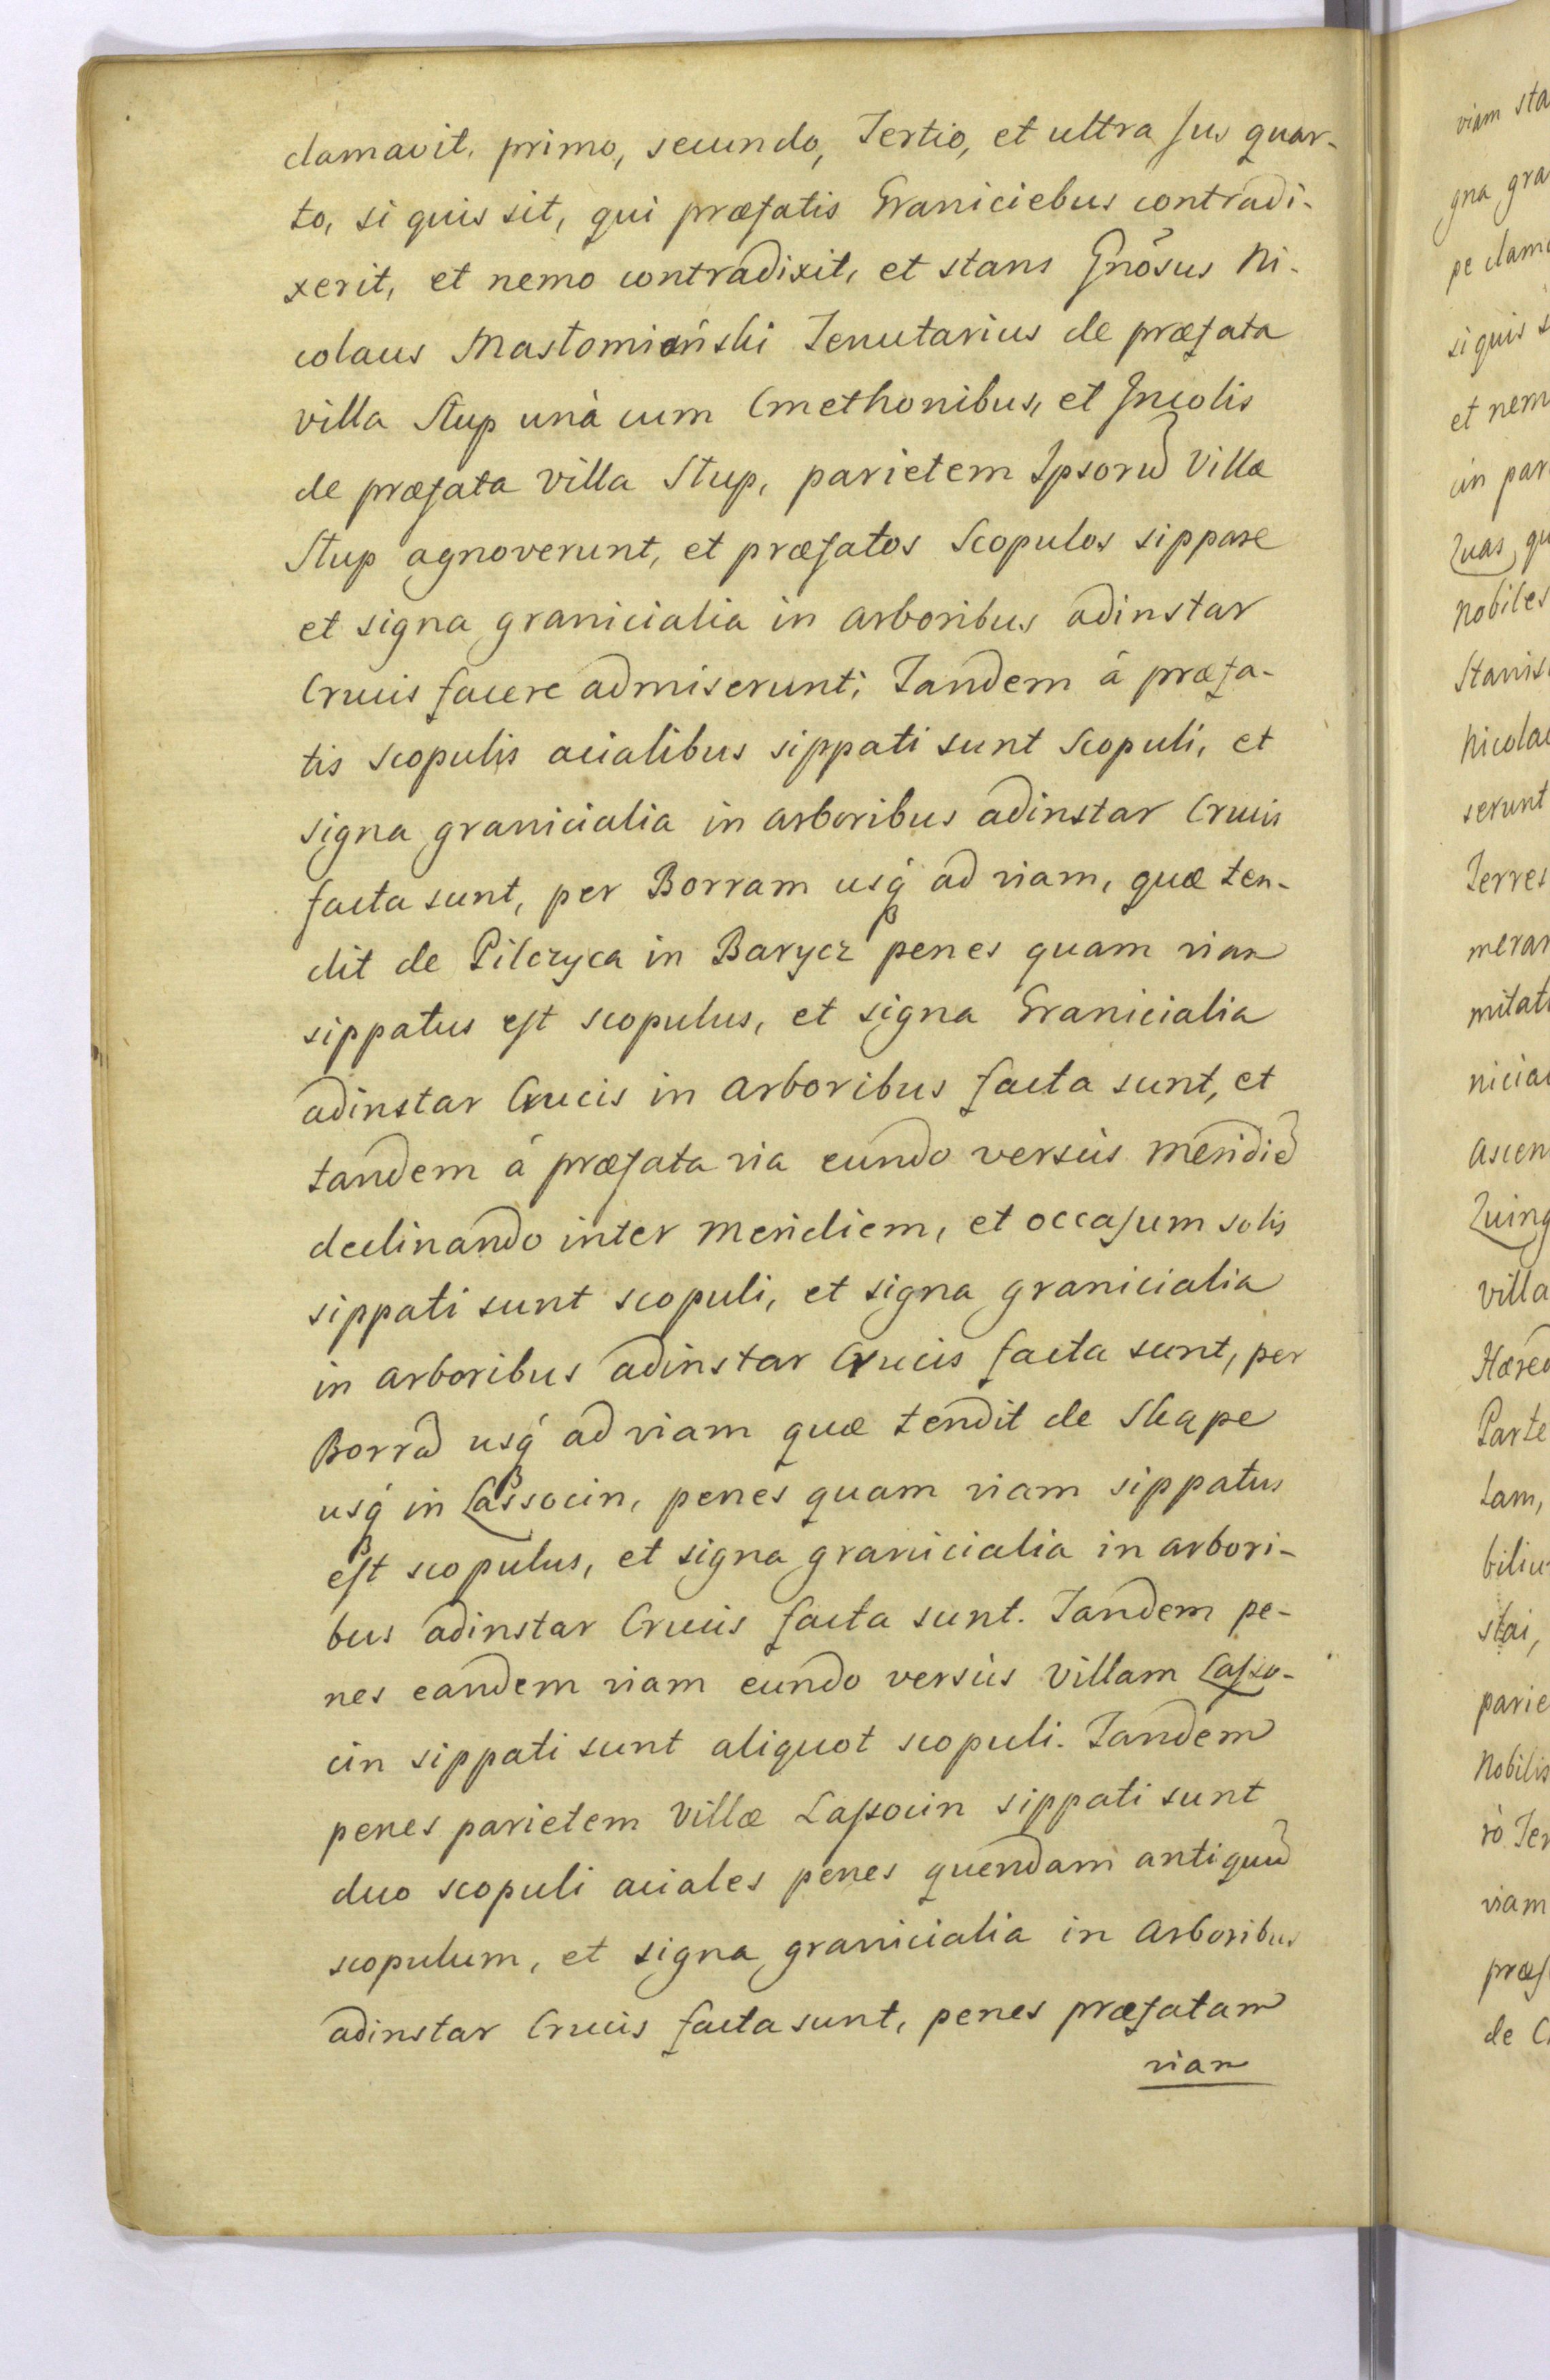 clamavit, primo, secundo, Tertio, et ultra Jus quar-
to, si quis sit, qui præfatis Graniciebus contradi-
xerit, et nemo contradixit, et stans Gnõsus Ni-
colaus Mastomieński Tenutarius de præfata
villa Stup unà cum Cmethonibus, et Incolis
de præfata villa Stup, parietem Ipsorũ Villæ
Stup agnoverunt, et præfatos Scopulos sippare
et signa granicialia in arboribus adinstar
Crucis facere admiserunt; Tandem á præfa-
tis scopulis acialibus sippati sunt Scopuli, et
signa granicialia in arboribus adinstar Crucis
facta sunt, per Borram usq́ ad viam, quæ ten-
dit de Pilczyca in Barycz penes quam viam
sippatus est scopulus, et signa Granicialia
adinstar Crucis in arboribus facta sunt, et
tandem á præfata via eundo versùs meridiẽ
declinando inter meridiem, et occasum solis
sippati sunt scopuli, et signa granicialia
in arboribus adinstar Crucis facta sunt, per
Borrã usq́ ad viam quæ tendit de Skąpe
usq́ in Lassocin, penes quam viam sippatus
est scopulus, et signa granicialia in arbori-
bus adinstar Crucis facta sunt. Tandem pe-
nes eandem viam eundo versùs villam Lasso-
cin sippati sunt aliquot scopuli. Tandem
penes parietem Villæ Lassocin sippati sunt
duo scopuli aciales penes quendam antiquũ
scopulum, et signa granicialia in arboribus
adinstar Crucis facta sunt, penes præfatam
viam
viam sta
gna gra
pe clam
si quis s
et nem
cin par
Zuas qu
Nobiles
Stanis
Nicola
serunt
Terres
meran
mitat
nicia
ascen
Zuing
villa
Hæred
Parte
tam,
biliu
stai,
parie
Nobilis
rò Ter
viam
præf
de C